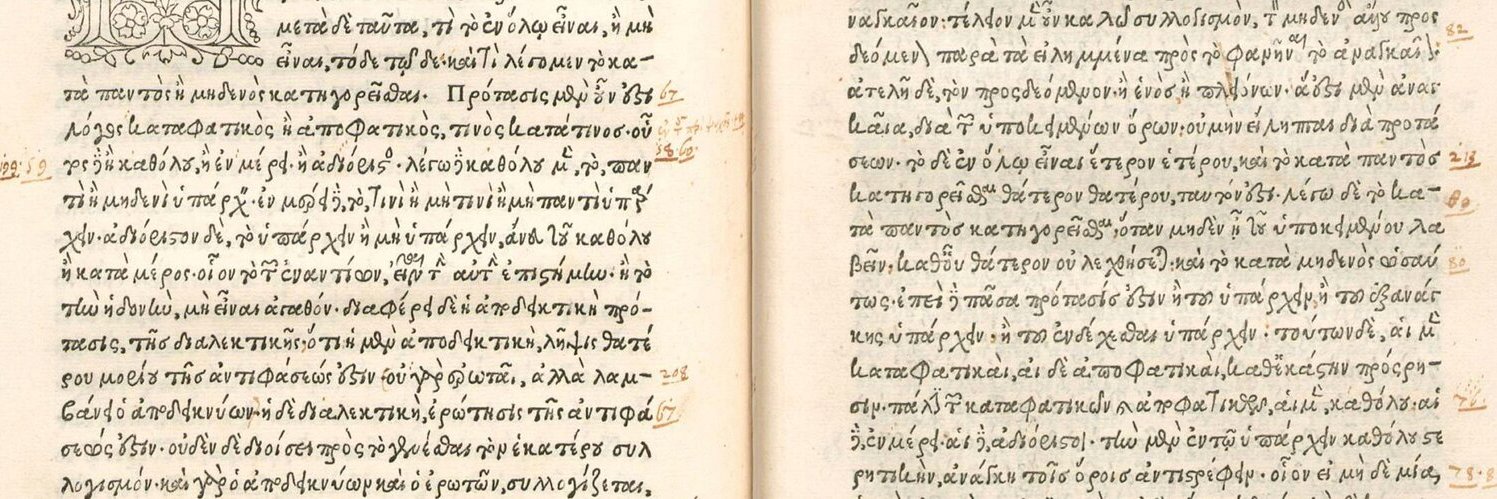 μετὰ δὲ ταῦτα, τί τὸ ἐν ὅλῳ εἶναι, ἢ μὴ
εἶναι, τόδε τῷδε· καὶ τί λέγομεν τὸ κα-
τὰ παντὸς ἢ μηδενὸς κατηγορεῖσθαι. Πρότασις μὲν οὖν ἐστὶ 67
λόγος καταφατικὸς ἢ ἀποφατικὸς, τινὸς κατά τινος· οὗ
58·60
τος δὲ ἢ καθόλου, ἢ ἐν μέρει· ἢ ἀδιόριστος. λέγω δὲ καθόλου μὲν, τὸ, παν 59
τὶ ἢ μηδενὶ ὑπάρχειν· ἐν μέρει δὲ, τὸ, τινὶ ἢ μὴ τινὶ ἢ μὴ παντὶ ὑπάρ
χειν· ἀδιόριστον δὲ, τὸ ὑπάρχειν ἢ μὴ ὑπάρχειν, ἄνευ τοῦ καθόλου
ἢ κατὰ μέρος· οἷον τὸ τῶν ἐναντίων, εἶναι τὴν αὐτὴν ἐπιστήμην· ἢ τὸ
τὴν ἡδονὴν, μὴ εἶναι ἀγαθόν· διαφέρει δὲ ἡ ἀποδεικτικὴ πρό-
τασις, τῆς διαλεκτικῆς, ὅτι ἡ μὲν ἀποδεικτικὴ, λῆψις θατέ
ρου μορίου τῆς ἀντιφάσεώς ἐστιν· οὐ γὰρ ἐρωτᾷ, ἀλλὰ λαμ- 208
βάνει ὁ ἀποδεικνύων· ἡ δὲ διαλεκτικὴ, ἐρώτησις τῆς ἀντιφά 67
σεώς ἐστιν· οὐδὲν δὲ διοίσει πρὸς τὸ γενέσθαι τὸν ἑκατέρου συλ
λογισμόν· καὶ γὰρ ὁ ἀποδεικνύων καὶ ὁ ἐρωτῶν, συλλογίζεται,
ναγκαῖον· τέλειον μὲν οὖν καλῶ συλλογισμὸν, τὸν μηδενὸς ἄλλου προς
82
δεόμενον παρὰ τὰ εἰλημμένα πρὸς τὸ φανῆναι τὸ ἀναγκαῖον·
ἀτελῆ δὲ, τὸν προσδεόμενον· ἢ ἑνὸς ἢ πλειόνων· ἅ ἐστι μὲν ἀναγ
καῖα, διὰ τῶν ὑποκειμένων ὅρων· οὐ μὴν εἴληπται διὰ προτά
σεων· τὸ δὲ ἐν ὅλῳ εἶναι ἕτερον ἑτέρου, καὶ τὸ κατὰ παντὸς 213
κατηγορεῖσθαι θάτερον θατέρου, ταυτόν ἐστι· λέγω δὲ τὸ κα-
τὰ παντὸς κατηγορεῖσθαι, ὅταν μηδὲν ᾖ τοῦ ὑποκειμένου λα
βεῖν, καθ' οὗ θάτερον οὐ λεχθήσεται· καὶ τὸ κατὰ μηδενὸς ὡσαύ 80
τως· ἐπεὶ δὲ πᾶσα πρότασίς ἐστιν ἢ τοῦ ὑπάρχειν, ἢ τοῦ ἐξ ἀνάγ
κης ὑπάρχειν· ἢ τοῦ ἐνδέχεσθαι ὑπάρχειν· τούτων δὲ, αἱ μὲν
καταφατικαὶ, αἱ δὲ ἀποφατικαὶ, καθ' ἑκάστην πρόσρη-
σιν· πάλιν τῶν καταφατικῶν καὶ ἀποφατικῶν, αἱ μὲν, καθόλου· αἱ
δὲ, ἐν μέρει· αἱ δὲ, ἀδιόριστοι· τὴν μὲν ἐν τῷ ὑπάρχειν καθόλου στε
ρητικὴν, ἀνάγκη τοῖς ὅροις ἀντιστρέφειν· οἷον εἰ μὴ δὲ μία,